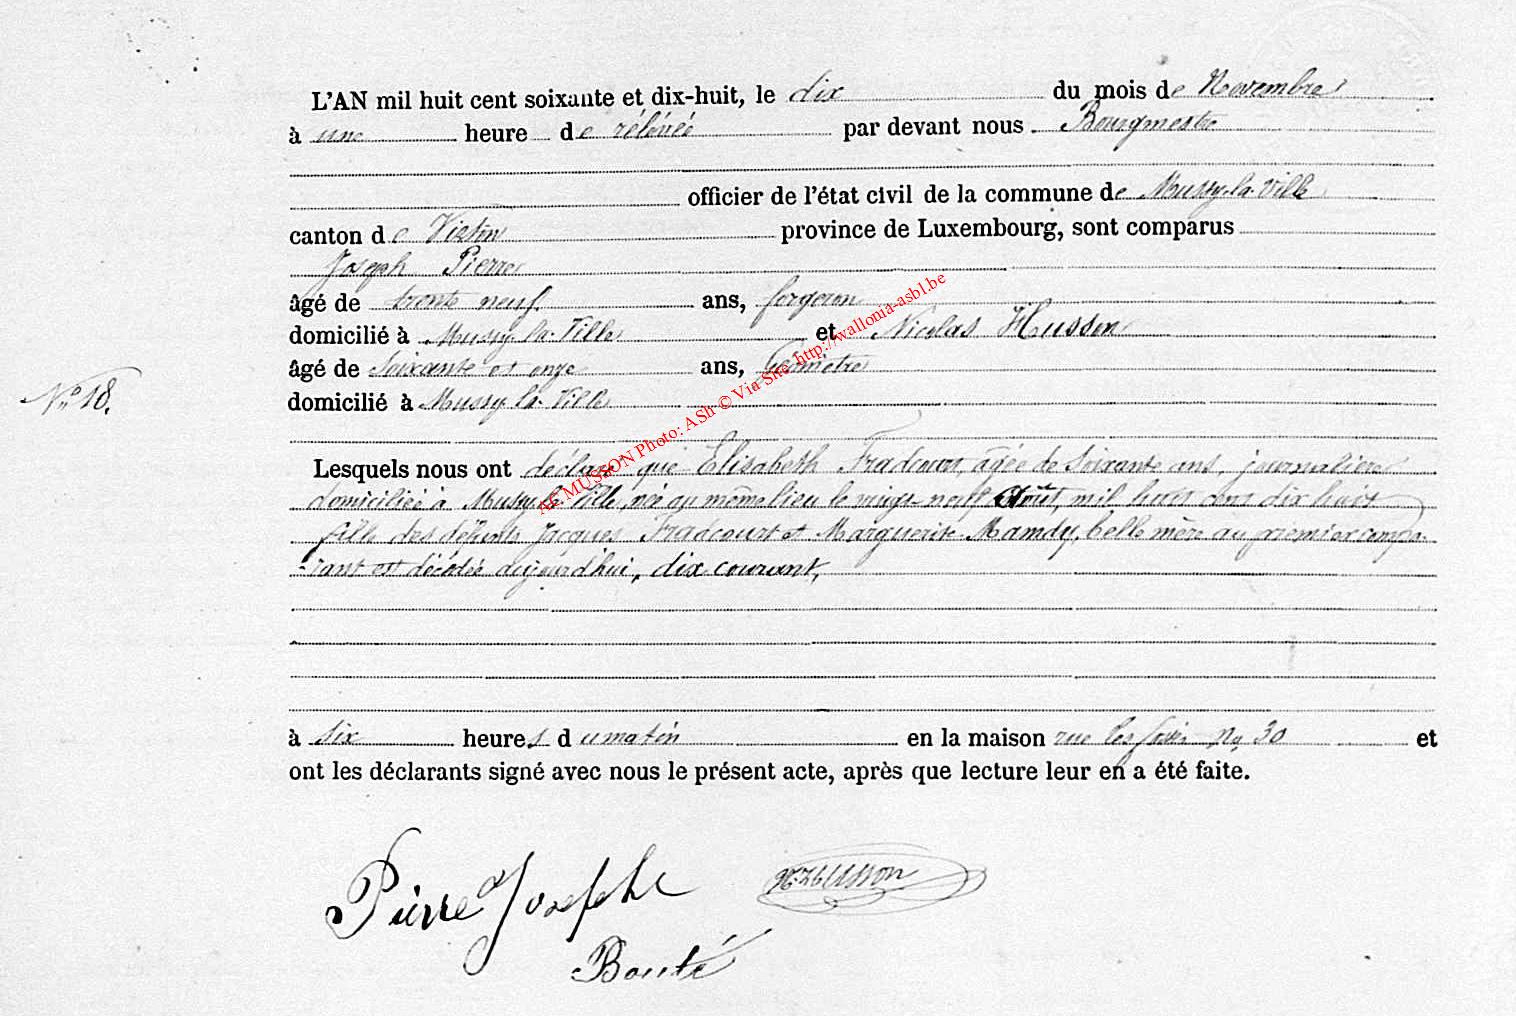 L'AN mil huit cent soixante et dix-huit, le dix du mois de Novembre
à une heure de rélévée par devant nous Bourgmestre
officier de l'état civil de la commune de Mussy-la-Ville
canton de Virton province de Luxembourg, sont comparus
Joseph Pierre
âgé de trente neuf ans, forgeron
domicilié à Mussy-la-Ville et Nicolas Husson
âgé de Soixante et onze ans, Géomètre
N° 18.
domicilié à Mussy-la-Ville
Lesquels nous ont déclaré que Elisabeth Fradcourt, agée de Soixante ans, journalière
domiciliée à Mussy-la-Ville, née au même lieu le vingt-neuf Août, mil huit cent dix huit
fille des défunts Jacques Fradcourt et Marguerite Mamdy, belle mère au premier compa-
-rant est décédée aujourd'hui, dix courant,
à six heures du matin en la maison rue les No 30 et
ont les déclarants signé avec nous le présent acte, après que lecture leur en a été faite.
Pierre Josephe
N. Husson
Bouté
AC MUSSON Photo: ASh © Via Site http://wallonia-asbl.be